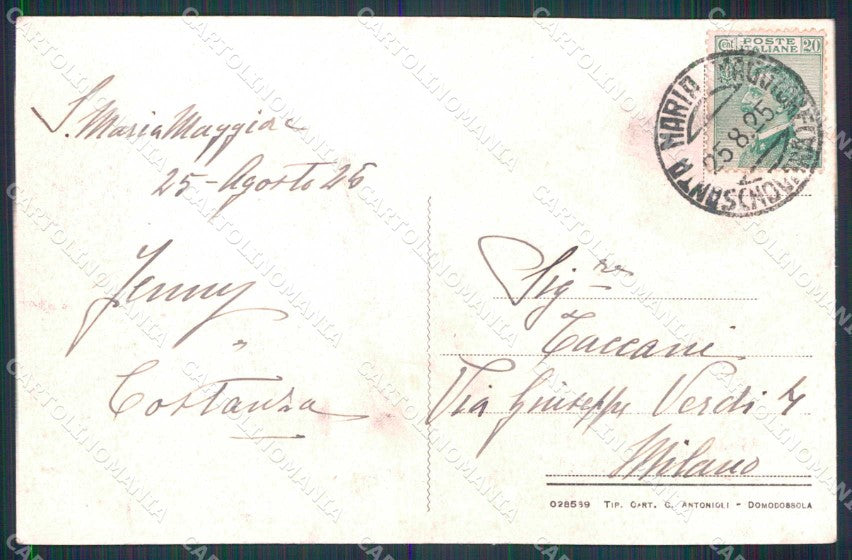 S. Maria Maggiore
25 - Agosto 25
Jenny
"
Costanza
POSTE ITALIANE 20
SANTA MARIA MAGGIORE
25.8.25
Sig.re
Taccani
Via Giuseppe Verdi 4
Milano
028569 TIP. CART. C. ANTONIOLI - DOMODOSSOLA
CARTOLINOMANIA